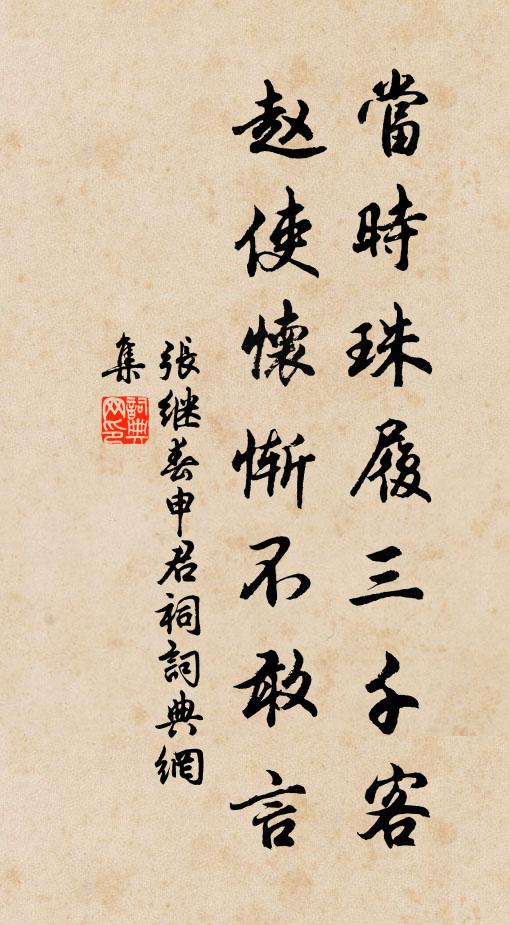 當時珠履三千客
赵使懷慚不敢言
張继春申君祠詞典網
集
詞典
网印